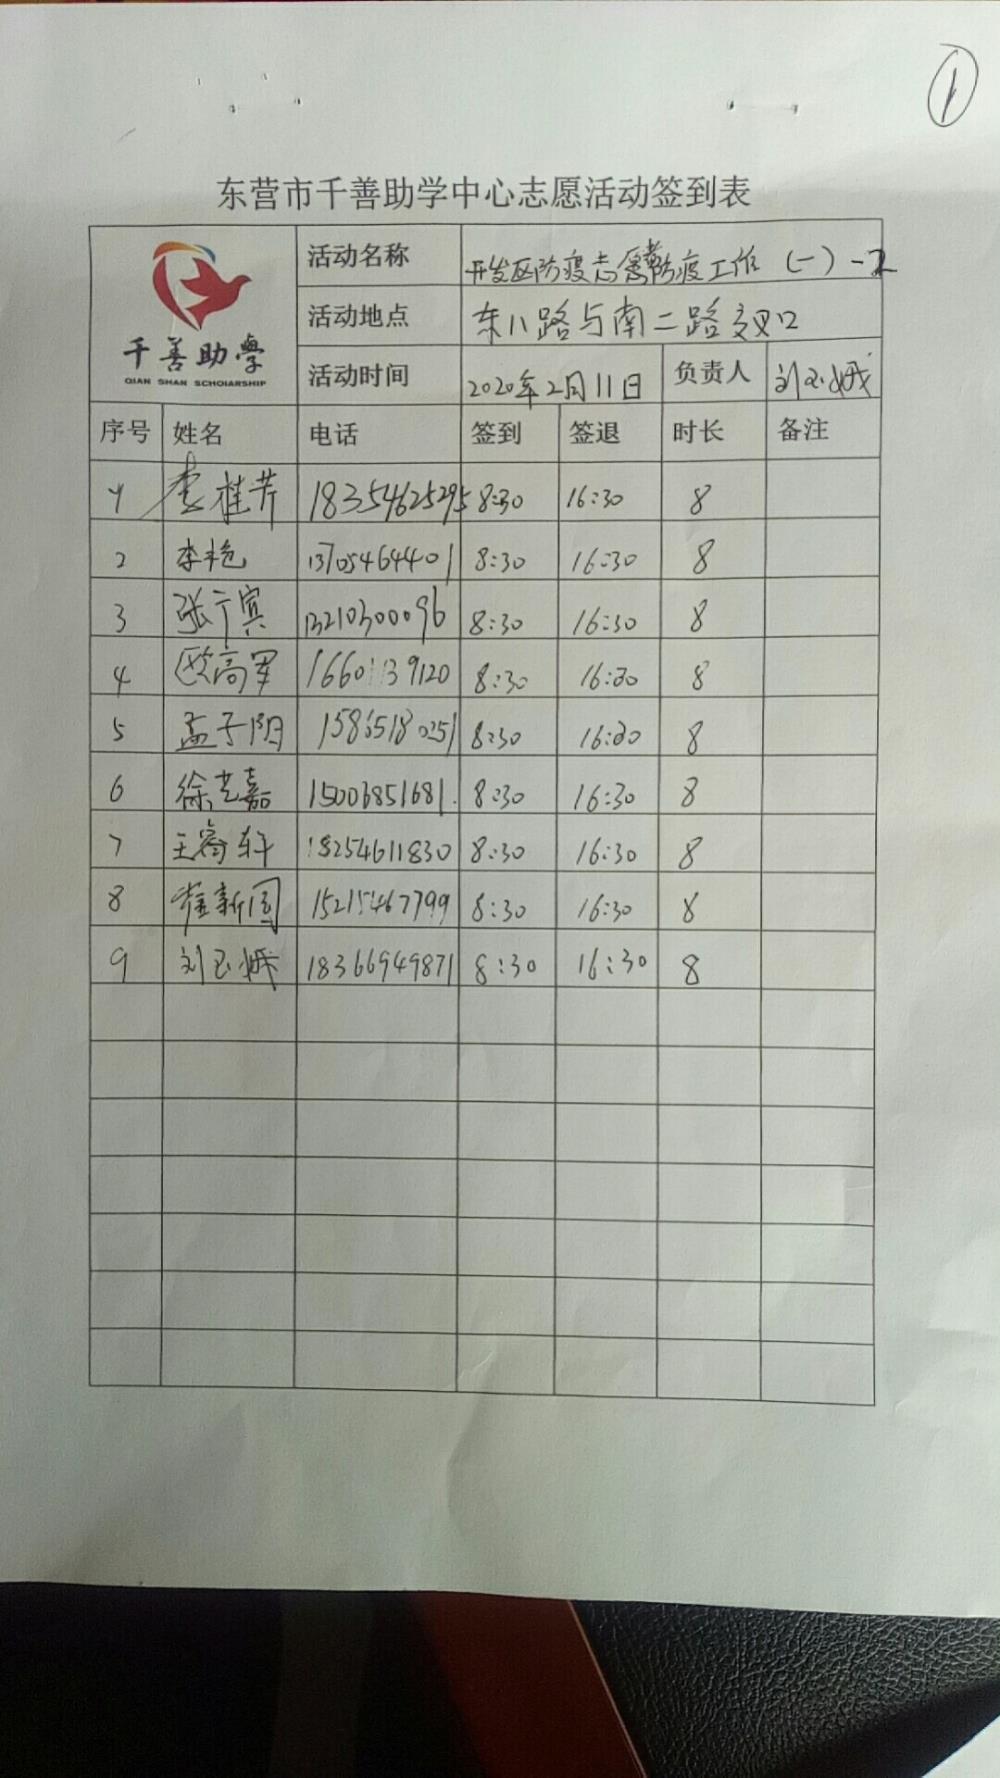 1
东营市千善助学中心志愿活动签到表
千善助学
QIAN SHAN SCHOLARSHIP
活动名称 开发区防疫志愿者防疫工作（一）
活动地点 东八路与南二路交叉口
活动时间 2020年2月11日 负责人 刘玉娥
序号 姓名 电话 签到 签退 时长 备注
1 李桂芹 18354625295 8:30 16:30 8
2 李艳 13705464401 8:30 16:30 8
3 张广宾 13210300096 8:30 16:30 8
4 欧高军 16601139120 8:30 16:30 8
5 孟子阳 15865180251 8:30 16:30 8
6 徐艺嘉 15006851681 8:30 16:30 8
7 王 轩 18254611830 8:30 16:30 8
8 崔新国 15215467799 8:30 16:30 8
9 刘玉娥 18366949871 8:30 16:30 8